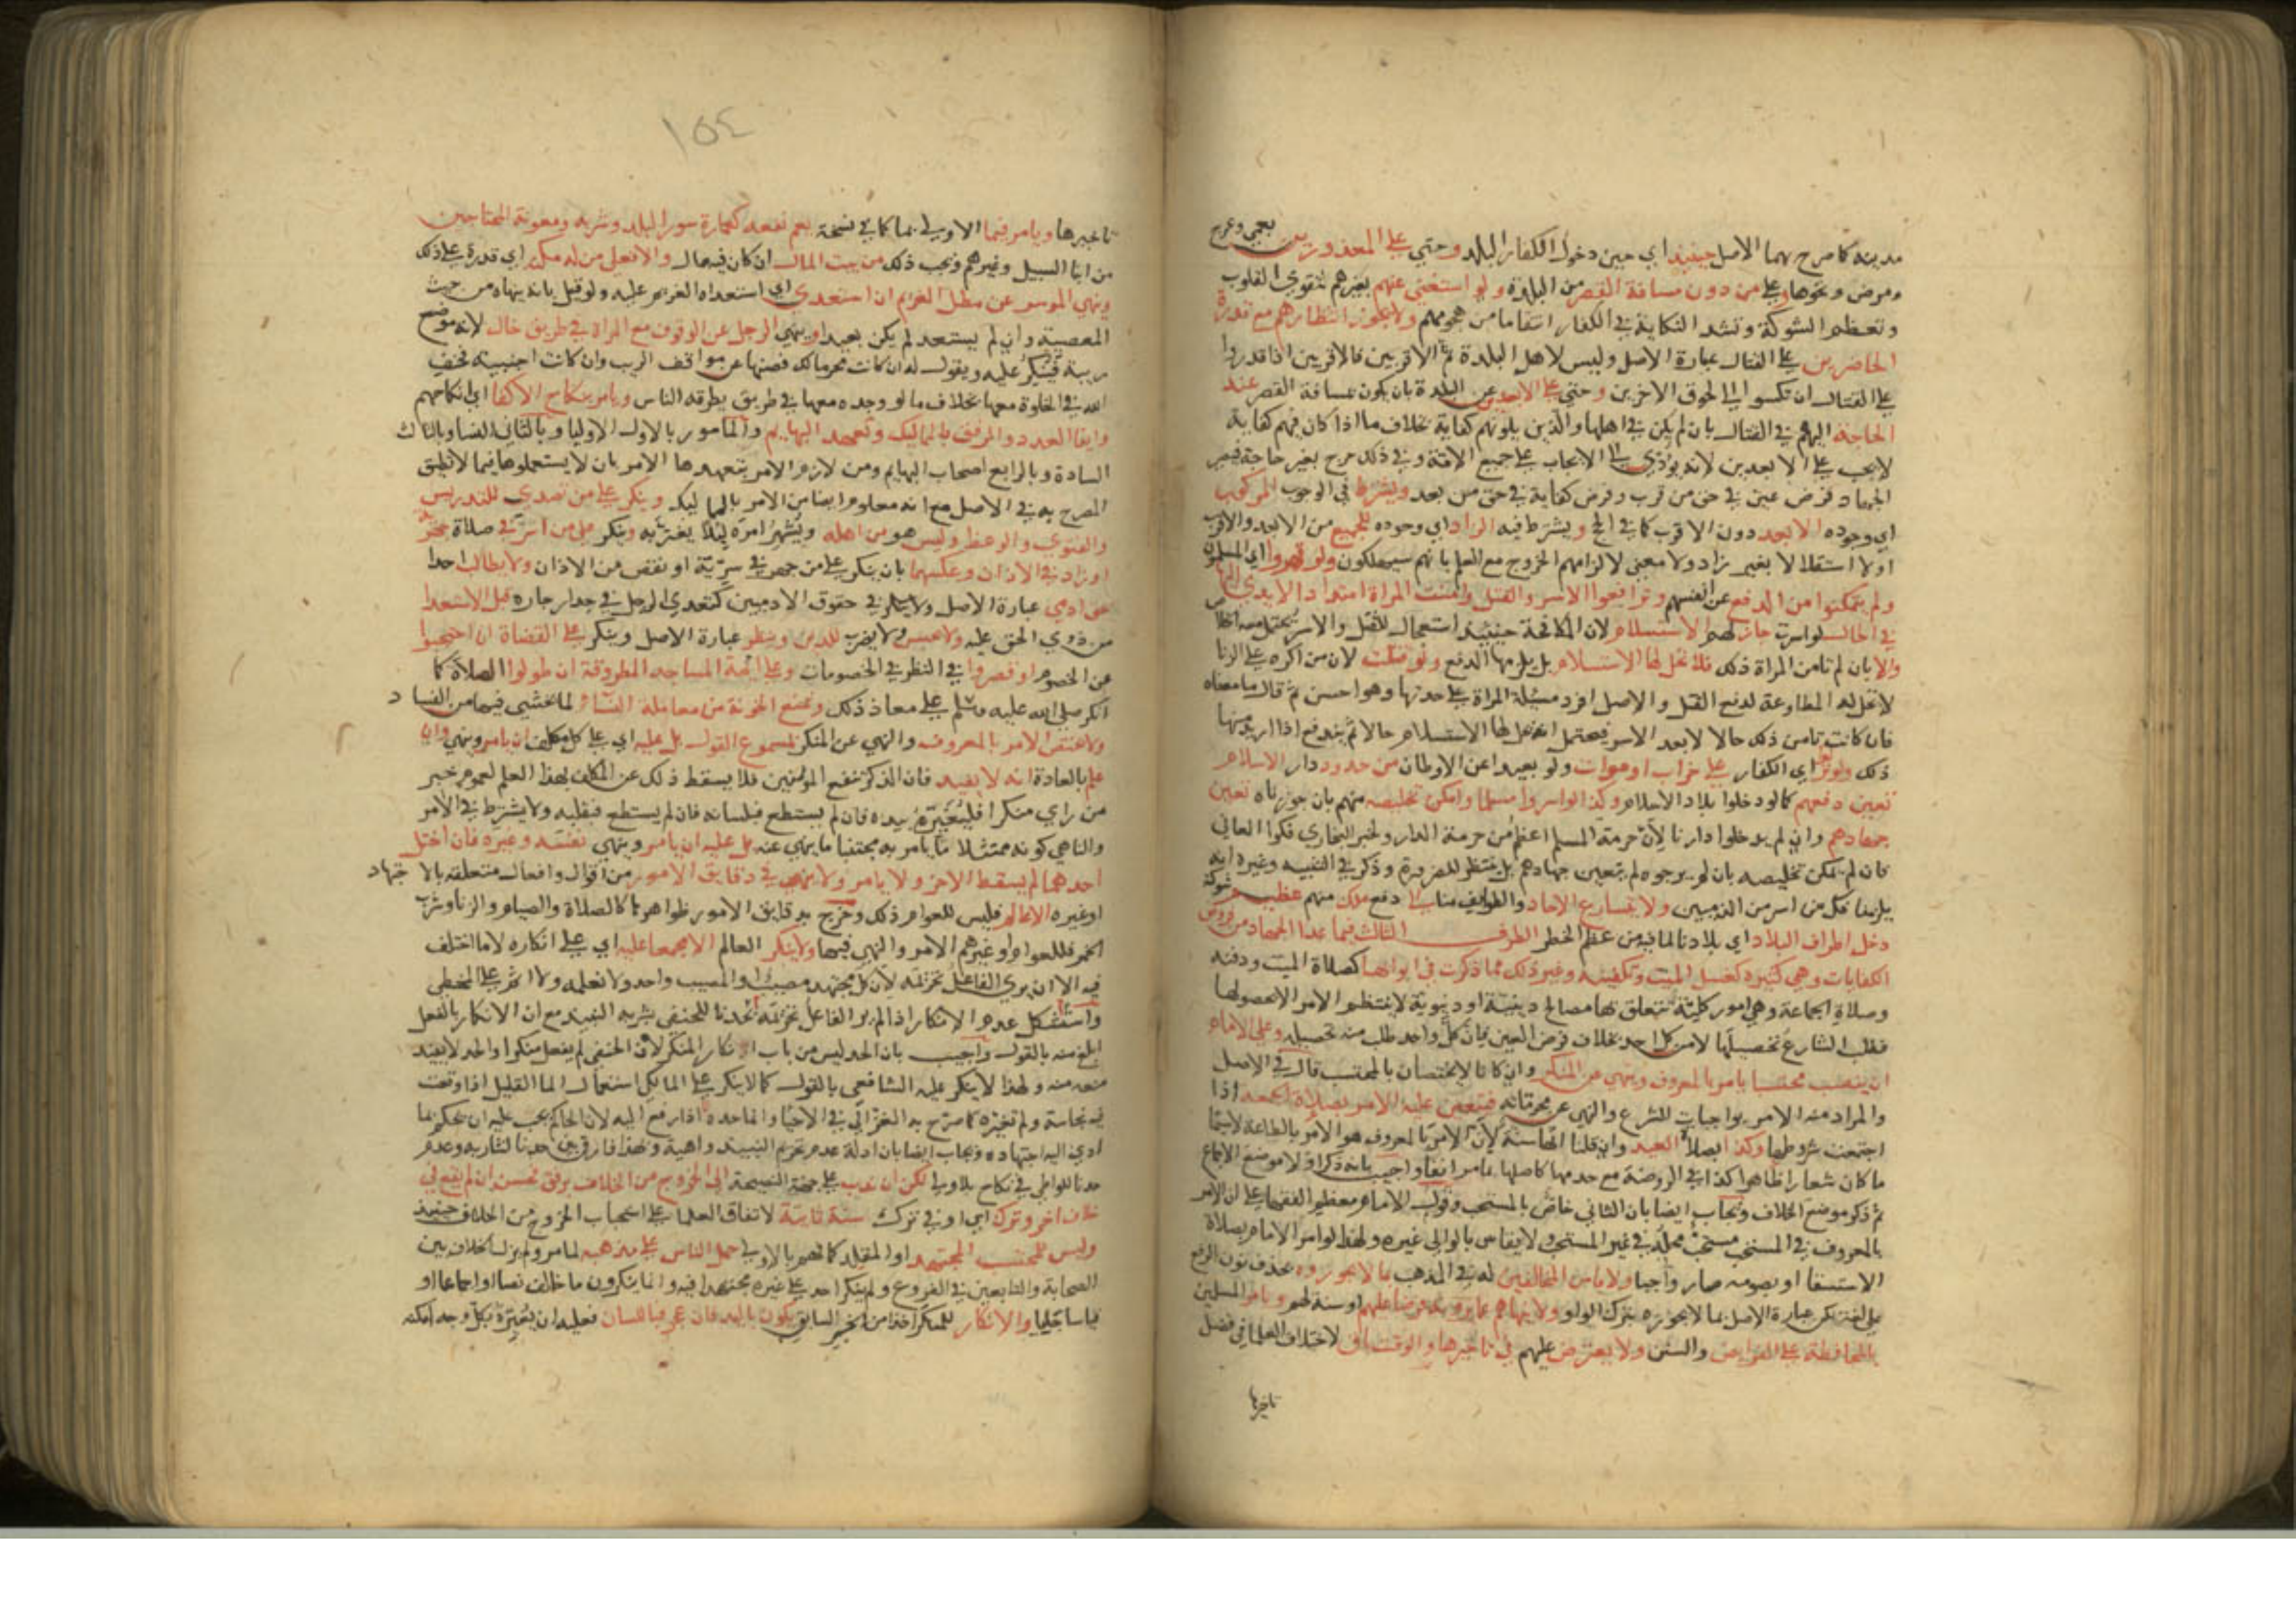 مدينة كما صرح بهما الاصل حينئذ اي حين دخول الكفار البلد وحتي علي المعذورين بعمى وعرج
ومرض ونحوها وعلي من دون مسافة القصر من البلدة ولو استغني عنهم بغيرهم لتقوي القلوب
وتعظم الشوكة وتشتد النكاية في الكفار انتقاما من هجومهم ولا يجوز انتظارهم مع قدرة
الحاضرين علي القتال عبارة الاصل وليس لاهل البلدة ثم الاقربين فالاقربين اذا قدروا
علي القتال ان يلبثوا الي لحوق الاخرين وحتي علي الابعدين عن البلدة بان يكون بمسافة القصر عند
الحاجة اليهم في القتال بان لم يكن في اهلها والذين يلونهم كفاية بخلاف ما اذا كان فيهم كفاية
لا يجب علي الابعدين لانه يودي الي الايجاب علي جميع الامة وفي ذلك حرج بغير حاجة فيصير
الجهاد فرض عين في حق من قرب وفرض كفاية في حق من بعد ويشترط في الوجوب المركوب
اي وجوده الابعد دون الاقرب كما في الحج ويشترط فيه الزاد اي وجوده للجميع من الابعد والاقرب
اولا استقلالا بغير زاد ولا معني لالزامهم الخروج مع العلم بانهم سيهلكون ولو قهروا اي المسلمون
ولم يتمكنوا من الدفع عن انفسهم وتوقعوا الاسر والقتل وامنت المراة امتداد الايدي اليها
في الحال لو اسرت جاز لهم الاستسلام لان المكافحة حينئذ استعجال للقتل والاسر يحتمل معه الخلاص
والا بان لم تامن المراة ذلك فلا يحل لها الاستسلام بل يلزمها الدفع ولو قتلت لان من اكره علي الزنا
لا تحل له المطاوعة لدفع القتل والاصل افرد مسئلة المراة علي حدتها وهو احسن ثم قال ما معناه
فان كانت تامن ذلك حالا لا بعد الاسر فيحتمل انه يحل لها الاستسلام حالا ثم يندفع اذا اريد منها
ذلك ولو نزل اي الكفار علي خراب او موات ولو بعيدا عن الاوطان من حدود دار الاسلام
تعين دفعهم كما لو دخلوا بلاد الاسلام وكذا لو اسروا مسلما وامكن تخليصه منهم بان جوزناه تعين
جهادهم وان لم يدخلوا دارنا لان حرمة المسلم اعظم من حرمة الدار ولخبر البخاري فكوا العاني
فان لم يمكن تخليصه بان لم يرجوه لم يتعين جهادهم بل ينتظر للضرورة وذكر في التنبيه وغيره انه
يلزمنا فك من اسر من الذميين ولا يتسارع الاحاد والطوايف منا الي دفع ملك منهم عظيم شوكة
دخل اطراف البلاد اي بلادنا لما فيه من عظم الخطر الطرف الثالث فيما عدا الجهاد من فروض
الكفايات وهي كثيرة كغسل الميت وتكفينه وغير ذلك مما ذكرت في ابوابها كصلاة الميت ودفنه
وصلاة الجماعة وهي امور كلية تتعلق بها مصالح دينية او دنيوية لا ينتظم الامر الا بحصولها
فطلب الشارع تحصيلها لا من كل احد بخلاف فرض العين فان كل واحد طلب منه تحصيله وعلي الامام
ان ينصب محتسبا يامر بالمعروف وينهي عن المنكر وان كانا لا يختصان بالمحتسب قال في الاصل
والمراد منه الامر بواجبات الشرع والنهي عن محرماته فيتعين عليه الامر بصلاة الجمعة اذا
اجتمعت شروطها وكذا بصلاة العيد وان قلنا انها سنة لان الامر بالمعروف هو الامر بالطاعة لا سيما
ما كان شعارا ظاهرا كذا في الروضة مع جزمها كاصلها بما مر انفا واجيب بانه ذكر اولا موضع الاجماع
ثم ذكر موضع الخلاف ويجاب ايضا بان الثاني خاص بالمحتسب وقول الامام معظم الفقها علي ان الامر
بالمعروف في المستحب مستحب محله في غير المحتسب ولا يقاس بالوالي غيره ولهذا لو امر الامام بصلاة
الاستسقا او بصومه صار واجبا ولا يامر المخالفين له في المذهب بما لا يجوزوه بحذف نون الرفع
علي لغة لكن عبارة الاصل بما لا يجوزه بترك الواو ولا ينهاهم عما يرونه فرضا عليهم او سنة لهم ويامر المسلمين
بالمحافظة علي الفرايض والسنن ولا يعترض عليهم في تاخيرها والوقت باق لاختلاف العلما في فضل
تاخيرها
١٥٤
تاخيرها ويامر فيما الاولي بما كما في نسخة يعم نفعه كعمارة سور البلد وشربه ومعونة المحتاجين
من ابنا السبيل وغيرهم ويجب ذلك من بيت المال ان كان فيه مال والا فعلي من له مكنة اي قدرة علي ذلك
وينهي الموسر عن مطل الغريم ان استعدي اي استعداه الغريم عليه ولو قيل بانه ينهاه من حيث
المعصية وان لم يستعد لم يكن بعيدا وينهي الرجل عن الوقوف مع المراة في طريق خال لانه موضع
ريبة فينكر عليه ويقول له ان كانت محرما لك فصنها عن مواقف الريب وان كانت اجنبية فخف
الله في الخلوة معها بخلاف ما لو وجده معها في طريق يطرقه الناس ويامر بنكاح الاكفا اي انكاحهم
وايفا العدد والرفق بالمماليك وتعهد البهايم والمامور بالاول الاوليا وبالثاني النسا وبالثالث
السادة وبالرابع اصحاب البهايم ومن لازم الامر بتعهدها الامر بان لا يستعملوها فيما لا تطيق
المصرح به في الاصل مع انه معلوم ايضا من الامر بالمماليك وينكر علي من تصدي للتدريس
والفتوي والوعظ وليس هو من اهله ويشهر امره لئلا يغتر به وينكر علي من اسر في صلاة جهرية
او زاد في الاذان وعكسهما بان ينكر علي من جهر في سرية او نقص من الاذان ولا يطالب احدا
بحق ادمي عبارة الاصل ولا ينكر في حقوق الادميين كتعدي الرجل في جدار جاره قبل الاستعدا
من ذوي الحق عليه ولا يحبس ولا يضرب للدين وينظر عبارة الاصل وينكر علي القضاة ان احتجبوا
عن الخصوم او قصروا في النظر في الخصومات وعلي ايمة المساجد المطروقة ان طولوا الصلاة كما
انكر صلي الله عليه وسلم علي معاذ ذلك ويمنع الخونة من معاملة النساء لما يخشي فيها من الفساد
ولا يختص الامر بالمعروف والنهي عن المنكر بمسموع القول بل عليه اي علي كل مكلف ان يامر وينهي وان
علم بالعادة انه لا يفيد فان الذكري تنفع المومنين فلا يسقط ذلك عن المكلف بهذا العلم لعموم خبر
من راي منكرا فليغيره بيده فان لم يستطع فبلسانه فان لم يستطع فبقلبه ولا يشترط في الامر
والناهي كونه ممتثلا ما يامر به مجتنبا ما ينهي عنه بل عليه ان يامر وينهي نفسه وغيره فان اختل
احدهما لم يسقط الاخر ولا يامر ولا ينهي في دقايق الامور من اقوال وافعال متعلقة بالاجتهاد
او غيره الا عالم فليس للعوام ذلك وخرج بدقايق الامور ظواهرها كالصلاة والصيام والزنا وشرب
الخمر فللعوام وغيرهم الامر والنهي فيها ولا ينكر العالم الا مجمعا عليه اي علي انكاره لا ما اختلف
فيه الا ان يري الفاعل تحريمه لان كل مجتهد مصيب او المصيب واحد ولا نعلمه ولا اثم علي المخطي
واستشكل عدم الانكار اذا لم ير الفاعل تحريمه بحدنا للحنفي بشربه النبيذ مع ان الانكار بالفعل
ابلغ منه بالقول واجيب بان الحد ليس من باب انكار المنكر لان الحنفي لم يفعل منكرا والحد لا يفيد
منعه منه ولهذا لا ينكر عليه الشافعي بالقول كما لا ينكر علي المالكي استعمال الما القليل اذا وقعت
فيه نجاسة ولم تغيره كما صرح به الغزالي في الاحيا وانما حده اذا رفع اليه لان الحاكم يجب عليه ان يحكم بما
ادي اليه اجتهاده ويجاب ايضا بان ادلة عدم تحريم النبيذ واهية وبهذا فارق حدنا لشاربه وعدم
حدنا للواطي في نكاح بلا ولي لكن ان ندب علي جهة النصيحة الي الخروج من الخلاف برفق فحسن ان لم يقع في
خلاف اخر وترك اي او في ترك سنة ثابتة لاتفاق العلما علي استحباب الخروج من الخلاف حينئذ
وليس للمحتسب المجتهد او المقلد كما فهم بالاولي حمل الناس علي مذهبه لما مر ولم يزل الخلاف بين
الصحابة والتابعين في الفروع ولم ينكر احد علي غيره مجتهدا فيه وانما ينكرون ما خالف نصا او اجماعا او
قياسا جليا والانكار للمنكر اخذا من الخبر السابق يكون باليد فان عجز فباللسان فعليه ان يغيره بكل وجه امكنه